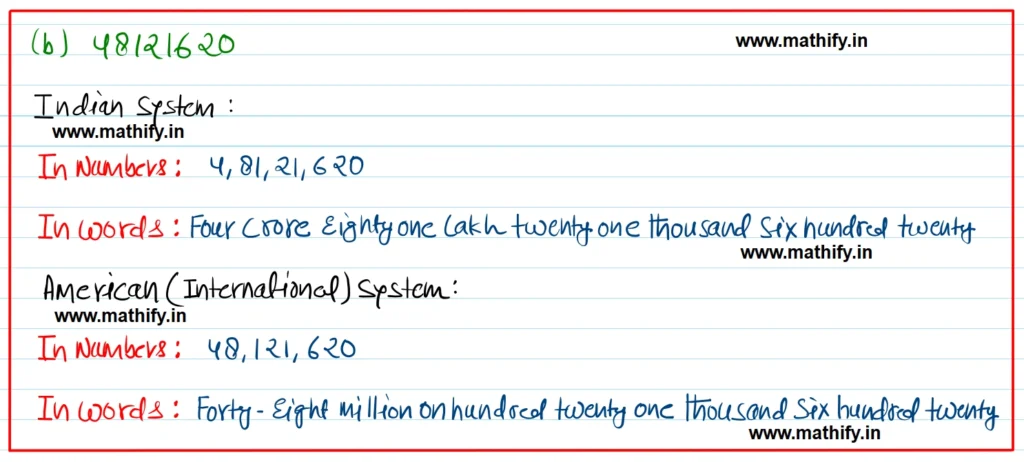 (b) 48121620
www.mathify.in
Indian System :
www.mathify.in
In Numbers : 4,81,21,620
In words : Four Crore Eighty one Lakh twenty one thousand six hundred twenty
www.mathify.in
American (International) System :
www.mathify.in
In Numbers : 48,121,620
In words : Forty - Eight Million on hundred twenty one thousand six hundred twenty
www.mathify.in